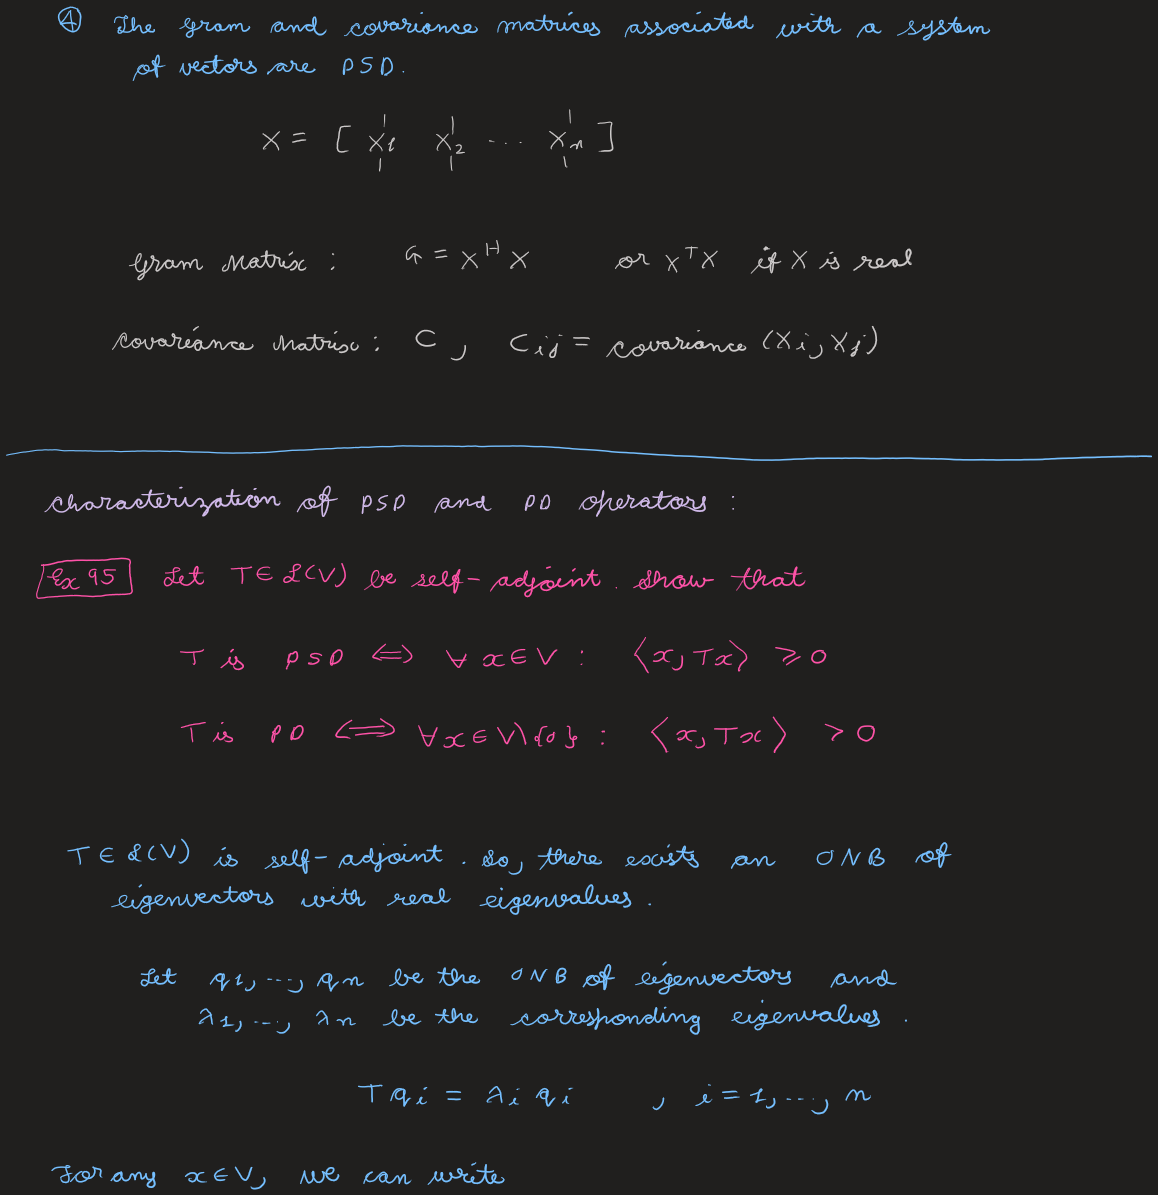 ④ The Gram and covariance matrices associated with a system
of vectors are PSD.
X = [ X₁ X₂ ... Xₙ ]
Gram Matrix : G = Xᴴ X or Xᵀ X if X is real
Covariance Matrix : C , Cᵢⱼ = covariance (Xᵢ, Xⱼ)
Characterization of PSD and PD operators :
Ex 95 Let T ∈ ℒ(V) be self-adjoint. Show that
T is PSD ⟺ ∀ x ∈ V : ⟨x, Tx⟩ ⩾ 0
T is PD ⟺ ∀ x ∈ V\{0} : ⟨x, Tx⟩ > 0
T ∈ ℒ(V) is self-adjoint. So, there exists an ONB of
eigenvectors with real eigenvalues.
Let q₁, ..., qₙ be the ONB of eigenvectors and
λ₁, ..., λₙ be the corresponding eigenvalues.
T qᵢ = λᵢ qᵢ , i = 1, ..., n
For any x ∈ V, we can write